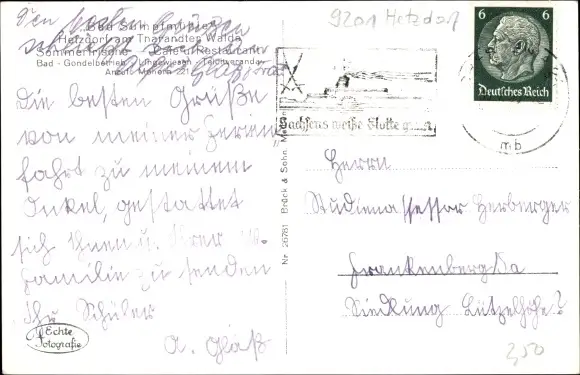 9201 Hetzdorf
Den
Bad Sumpfmühle
Hetzdorf am Tharandter Walde
Sommerfrische Café u. Restaurant
Bad - Gondelbetrieb - Liegewiesen - Teichveranda
Amt Mohorn 221
6 6
Deutsches Reich
Sachsens weiße Flotte
mb
Die besten Grüße
von meiner Ferien
fahrt zu meinem
Onkel, gestattet
sich Ihnen u. Ihrer w.
Familie zu senden
Ihr Schüler
A. Glaß
Echte
Fotografie
Nr. 26781 Brück & Sohn, Meißen
Herrn
Studienassessor Herberger
Frankenberg Sa
Siedlung Lützelhöhe
3,50